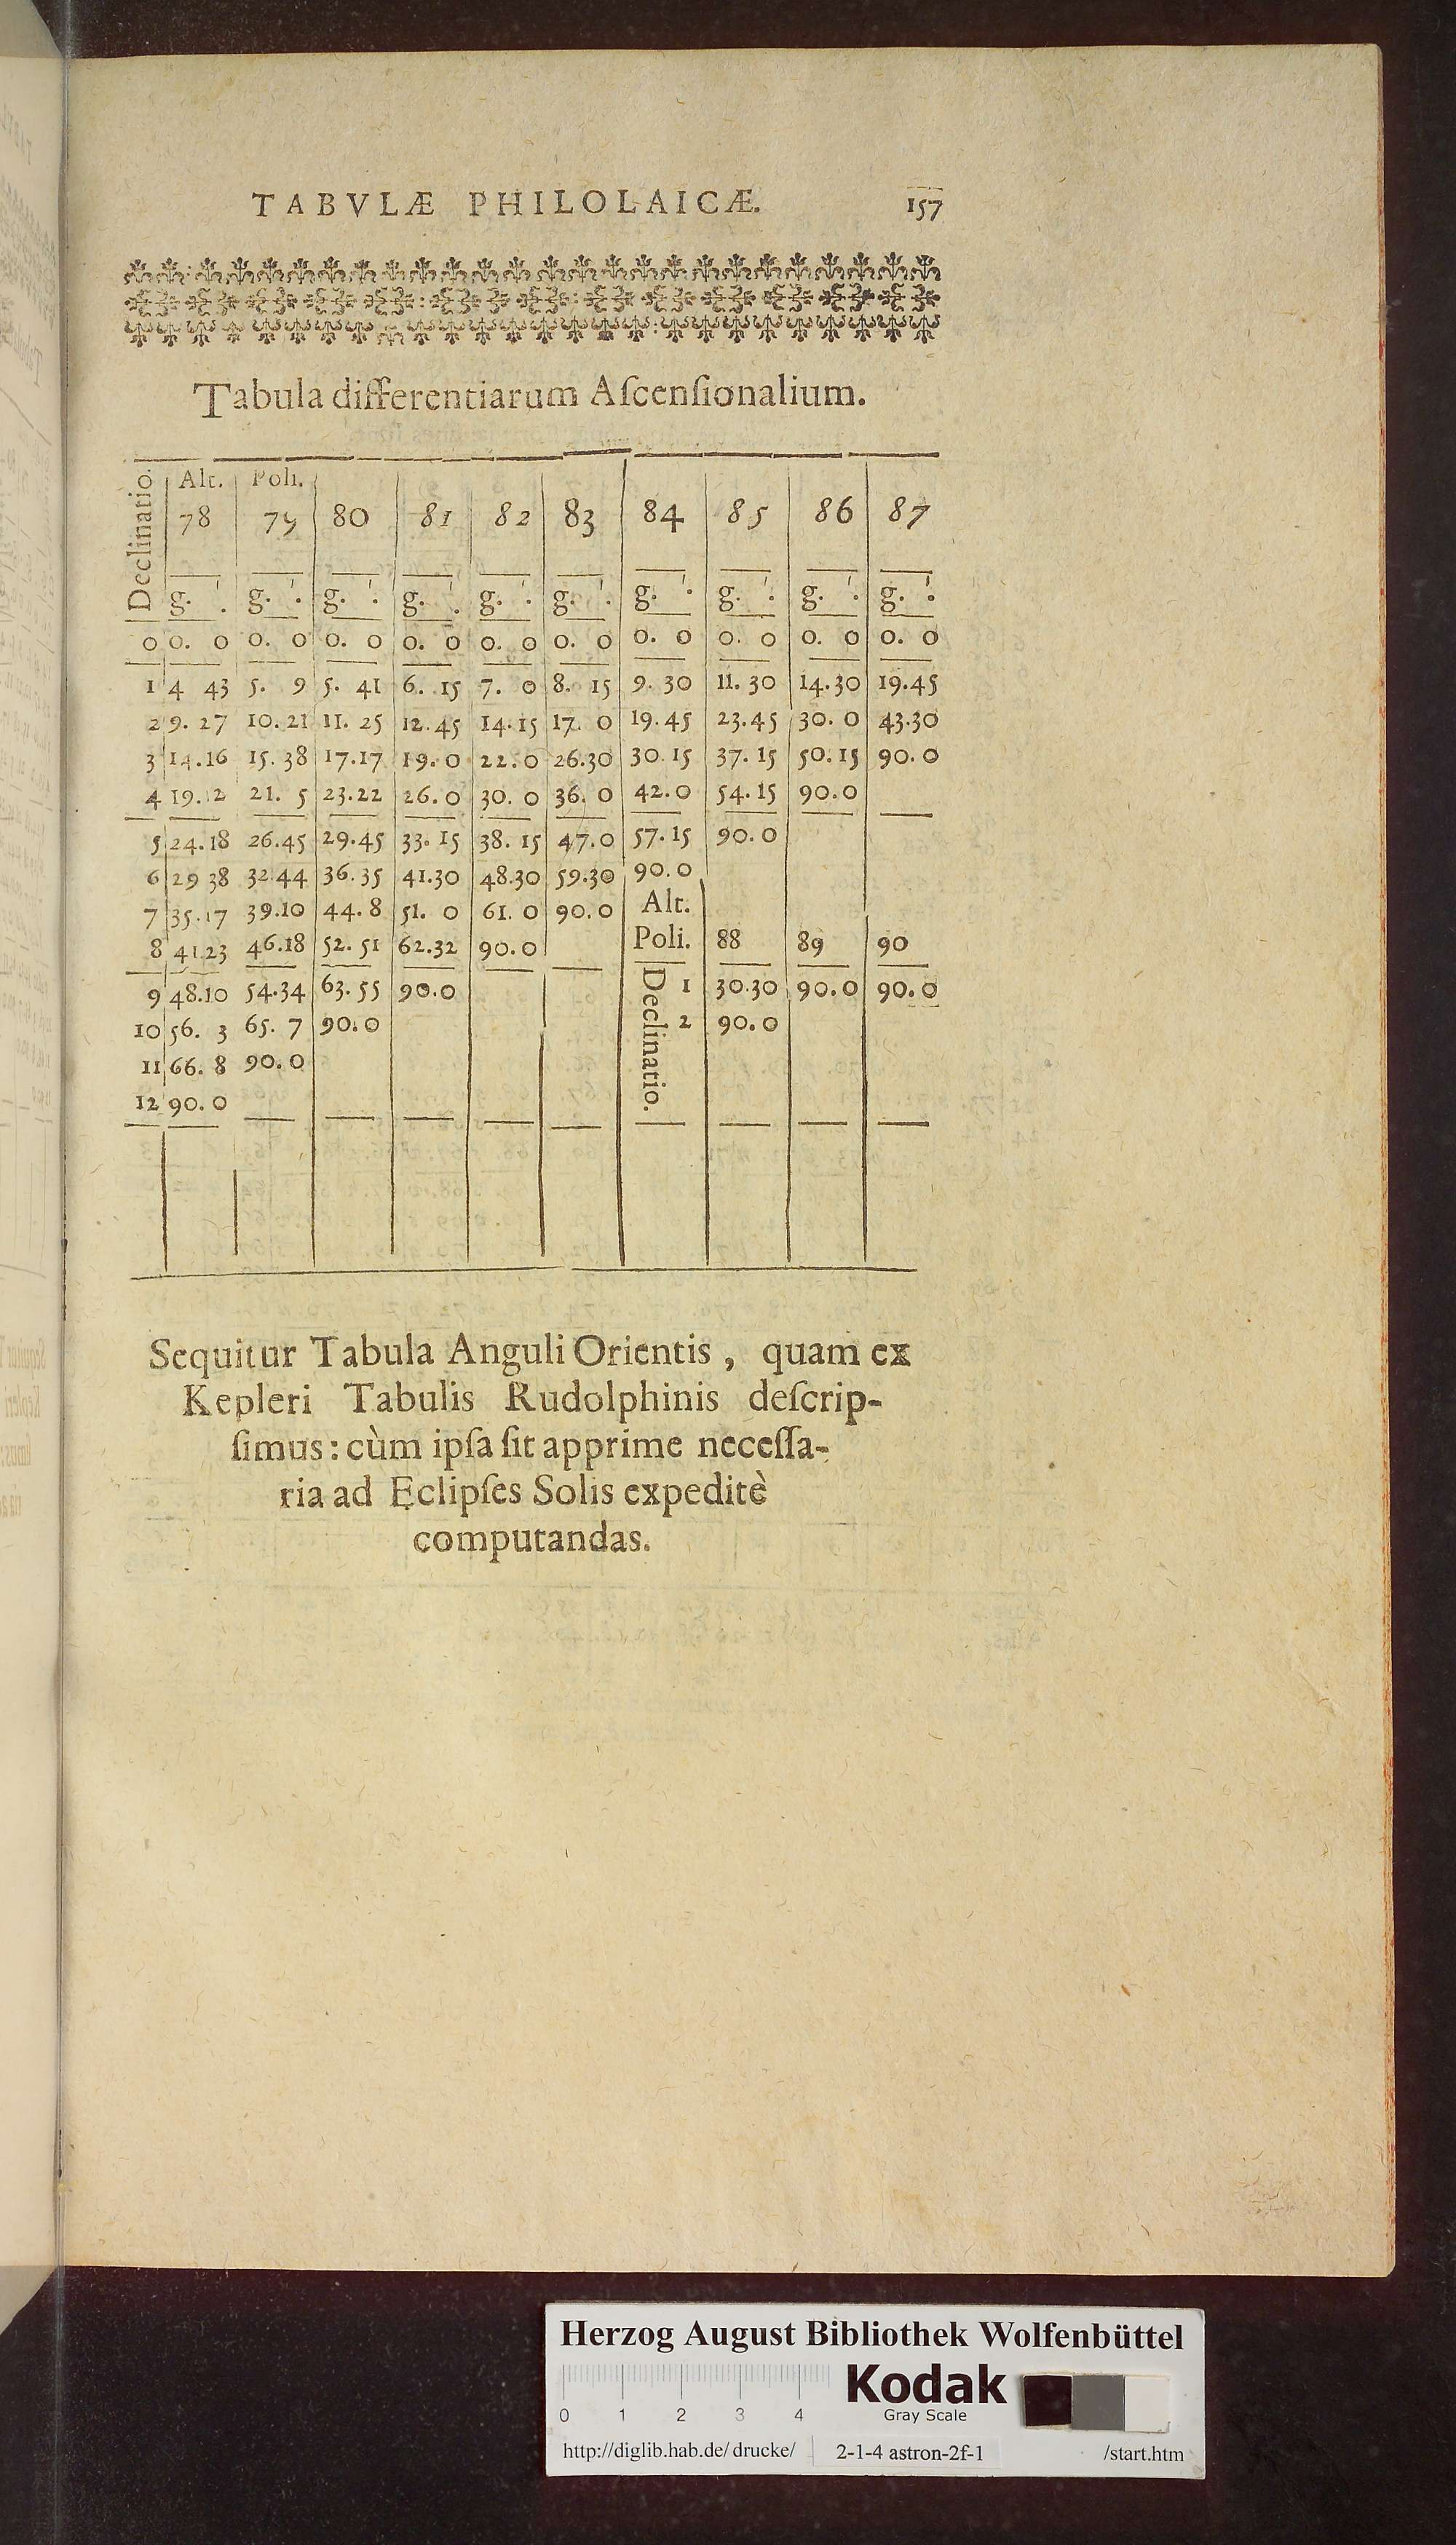 TABVLÆ PHILOLAICÆ. 157
Tabula differentiarum Aſcenſionalium.
Declinatio
Alt. Poli.
78 79 80 81 82 83 84 85 86 87
g. '. g. '. g. '. g. '. g. '. g. '. g. '. g. '. g. '. g. '.
0 0. 0 0. 0 0. 0 0. 0 0. 0 0. 0 0. 0 0. 0 0. 0 0. 0
1 4 43 5. 9 5. 41 6. 15 7. 0 8. 15 9. 30 11. 30 14.30 19.45
2 9. 27 10.21 11. 25 12.45 14.15 17. 0 19.45 23.45 30. 0 43.30
3 14.16 15.38 17.17 19. 0 22. 0 26.30 30.15 37. 15 50.15 90. 0
4 19. 2 21. 5 23.22 26. 0 30. 0 36. 0 42. 0 54. 15 90. 0
5 24.18 26.45 29.45 33. 15 38. 15 47. 0 57. 15 90. 0
6 29 38 32 44 36. 35 41.30 48.30 59.30 90. 0
7 35.17 39.10 44. 8 51. 0 61. 0 90. 0 Alt.
8 41.23 46.18 52. 51 62.32 90. 0 Poli. 88 89 90
9 48.10 54.34 63. 55 90. 0 1 30.30 90. 0 90. 0
10 56. 3 65. 7 90. 0 2 90. 0
11 66. 8 90. 0
12 90. 0
Declinatio.
Sequitur Tabula Anguli Orientis, quam ex
Kepleri Tabulis Rudolphinis deſcrip-
ſimus: cùm ipſa ſit apprime neceſſa-
ria ad Eclipſes Solis expeditè
computandas.
Herzog August Bibliothek Wolfenbüttel
0 1 2 3 4
Kodak
Gray Scale
http://diglib.hab.de/drucke/ 2-1-4 astron-2f-1 /start.htm